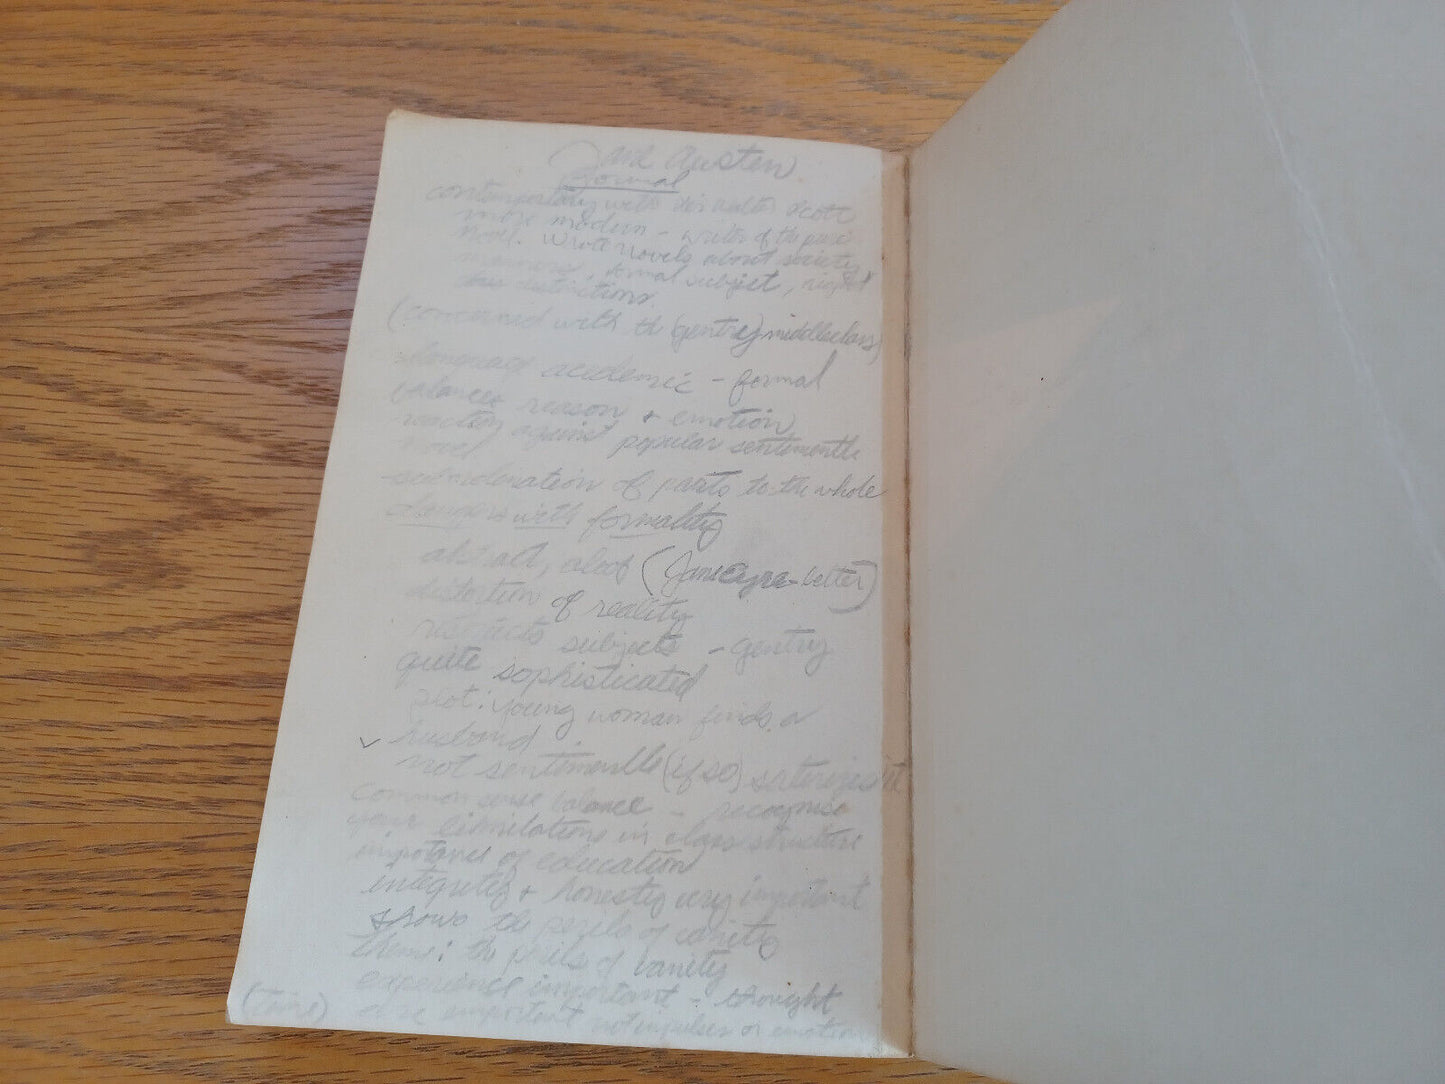 Jane Austen
formal
contemporary with Sir Walter Scott
more modern - writer of the pure
novel. Wrote novels about society &
manners, formal subject, rigid
class distinctions.
(concerned with the (gentry) middleclass)
language academic - formal
balances reason + emotion
reaction against popular sentimentle
novel
subordination of parts to the whole
with formality
abstract, aloof (Jane Eyre - better)
distortion of reality
restricts subjects - gentry
quite sophisticated
plot: young woman finds a
husband
not sentimentle (if so) saterizes it
common sense balance - recognise
your limitations in class structure
importance of education
integrity + honesty very important
shows the perils of vanity
theme: the perils of vanity
experience important - thought
(time) also important not impulses or emotion